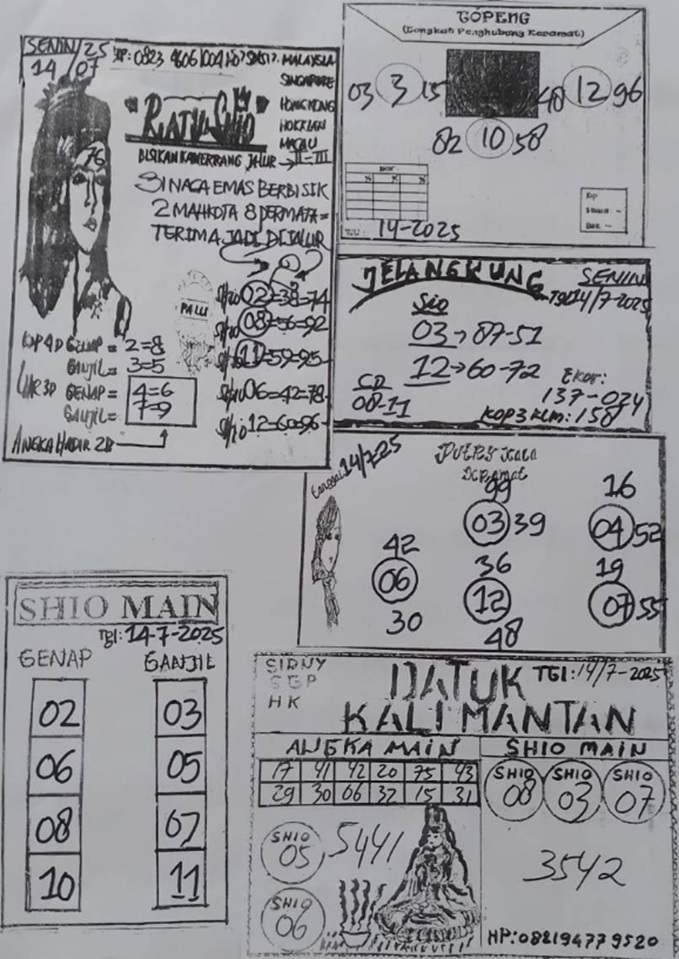 SENIN/25
14/07
MALAYSIA
SINGAPORE
HONGKONG
HOKKIAN
MACAU
RATU SHIO
II-III
76
3 1 NAGA EMAS BERBISIK
2 MAHKOTA 8 PERMATA=
TERIMA JADI DIJALUR
PALU
SHIO 02=38=74
SHIO 08=56=92
SHIO 11=59=95
SHIO 06=42=78
SHIO 12=60=96
KOP 4D GENAP = 2=8
GANJIL = 3=5
3D GENAP = 4=6
GANJIL = 7=9
ANGKA HADIR 2D
TOPENG
(Tongkah Penghubung Keramat)
03 3 15
48 12 96
82 10 58
14-2025
JELANGKUNG
SENIN
TGL 14/7-2025
Sio
03→87-51
12→60-72
CD
08-11
Ekor:
137-024
KOP 3 KLM: 158
Tanggal 14/7-25
99
03 39
16
04 52
42
06
30
36
12
48
19
07 55
SHIO MAIN
Tgl: 14-7-2025
GENAP GANJIL
02 03
06 05
08 07
10 11
SIDNY
SGP
HK
DATUK
KALIMANTAN
TGl: 14/7-2025
ANGKA MAIN
17 41 42 20 75 43
29 30 06 32 15 31
SHIO
05
5441
SHIO
06
SHIO MAIN
SHIO 08
SHIO 03
SHIO 07
3542
HP: 082194779520